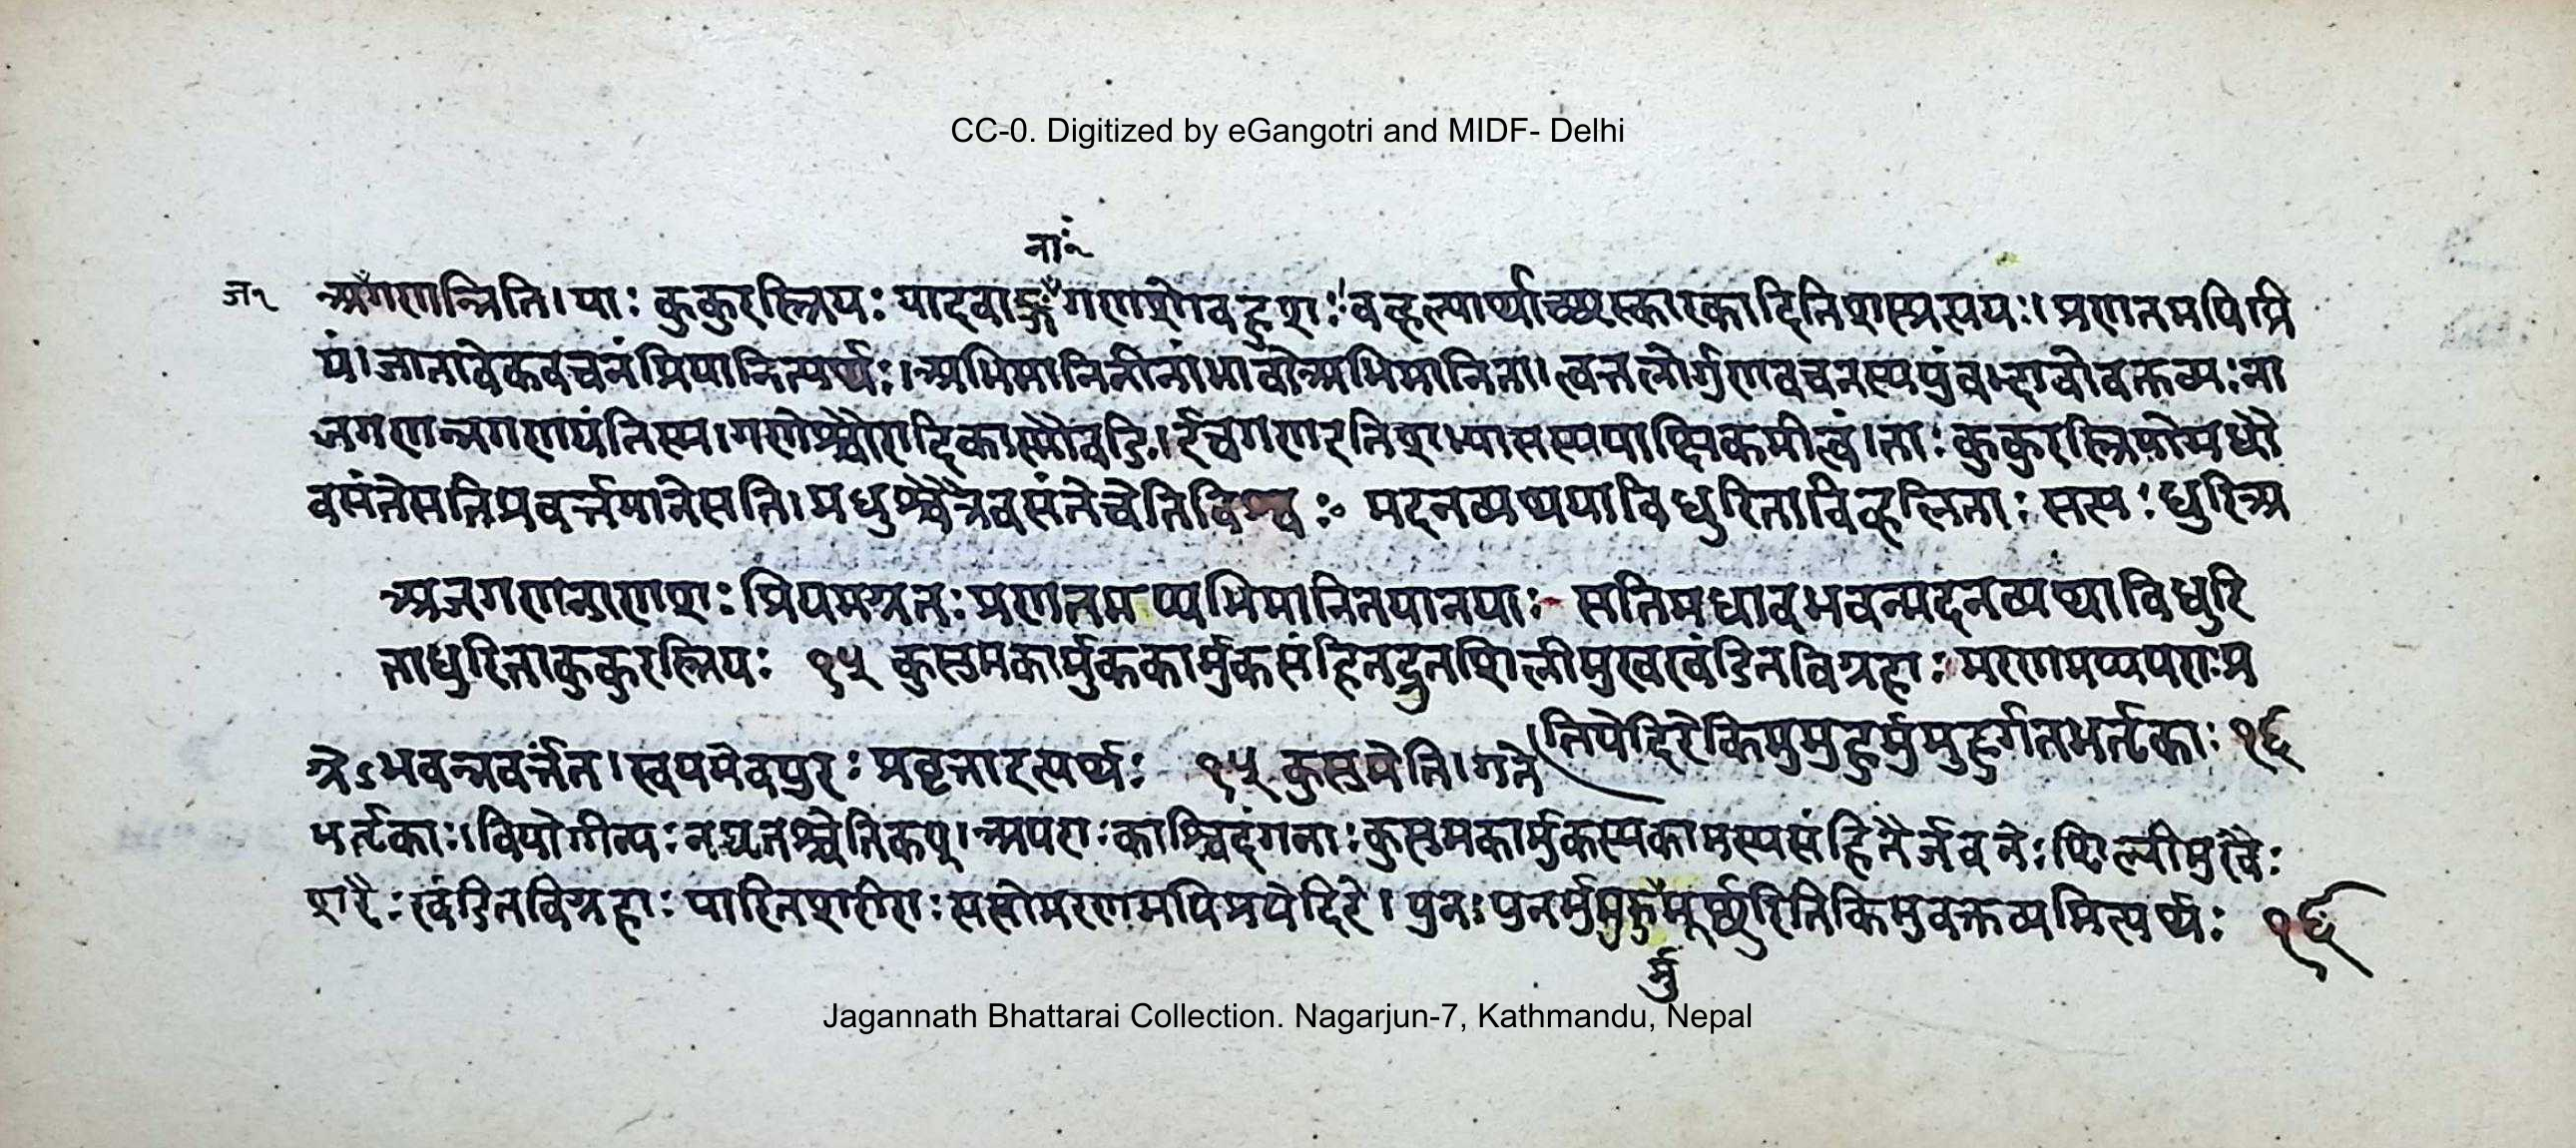 CC-0. Digitized by eGangotri and MIDF- Delhi
नाः२
ज१ अँगणन्निति। याः कुकुरस्त्रियः यादवाङ्गँगणशोबहुशः। वव्हल्पार्थाच्छस्कारकादिति शस्प्रत्ययः। प्रणतमपि प्रि
यं। जातावेकवचनं प्रियानित्यर्थः। अभिमानिनीनां भावोऽभिमानिता। त्वतलोर्गुणवचनस्य पुंवद्भावो वक्तव्यः ना
जगणन्नगणयंति स्म। गणेश्चौरादिकात्णौ चङि। ई च गण इति अभ्यासस्य पाक्षिकमीत्वं। ताः कुकुरस्त्रियो मधौ
वसंते सति प्रवर्त्तमाने सति। मधुश्चैत्रे वसंते चेति विश्वः मदनव्यथया विधुरिता विव्हलिताः सत्यः धुरि अ
अजगणन्गणशः प्रियमग्रतः प्रणतमप्यभिमानितया न याः सति मधावभवन्मदनव्यथा विधुरि
ता धुरि ताः कुकुरस्त्रियः १५ कुसुमकार्मुककार्मुकसंहितद्रुतशिलीमुखखंडितविग्रहाः मरणमप्यपराः प्र
तिपेदिरे किमु मुहुर्मुमुहुर्गतभर्तृकाः १६
ग्रेऽभवन्नवर्त्तत। स्वयमेव पुरः प्रवृत्ता इत्यर्थः १५ कुसुमेति। गत
भर्तृकाः। वियोगीन्यः नद्यृतश्चेति कप्। अपराः काश्चिदंगनाः कुसुमकार्मुकस्य कामस्य संहितैर्जवनैः शिलीमुखैः
शरैः खंडितविग्रहाः पारितशरीराः सत्यो मरणमपि प्रपेदिरे। पुनः पुनर्मुमुहुर्मूर्छुरिति किमु वक्तव्यमित्यर्थः १६
र्मु
Jagannath Bhattarai Collection. Nagarjun-7, Kathmandu, Nepal